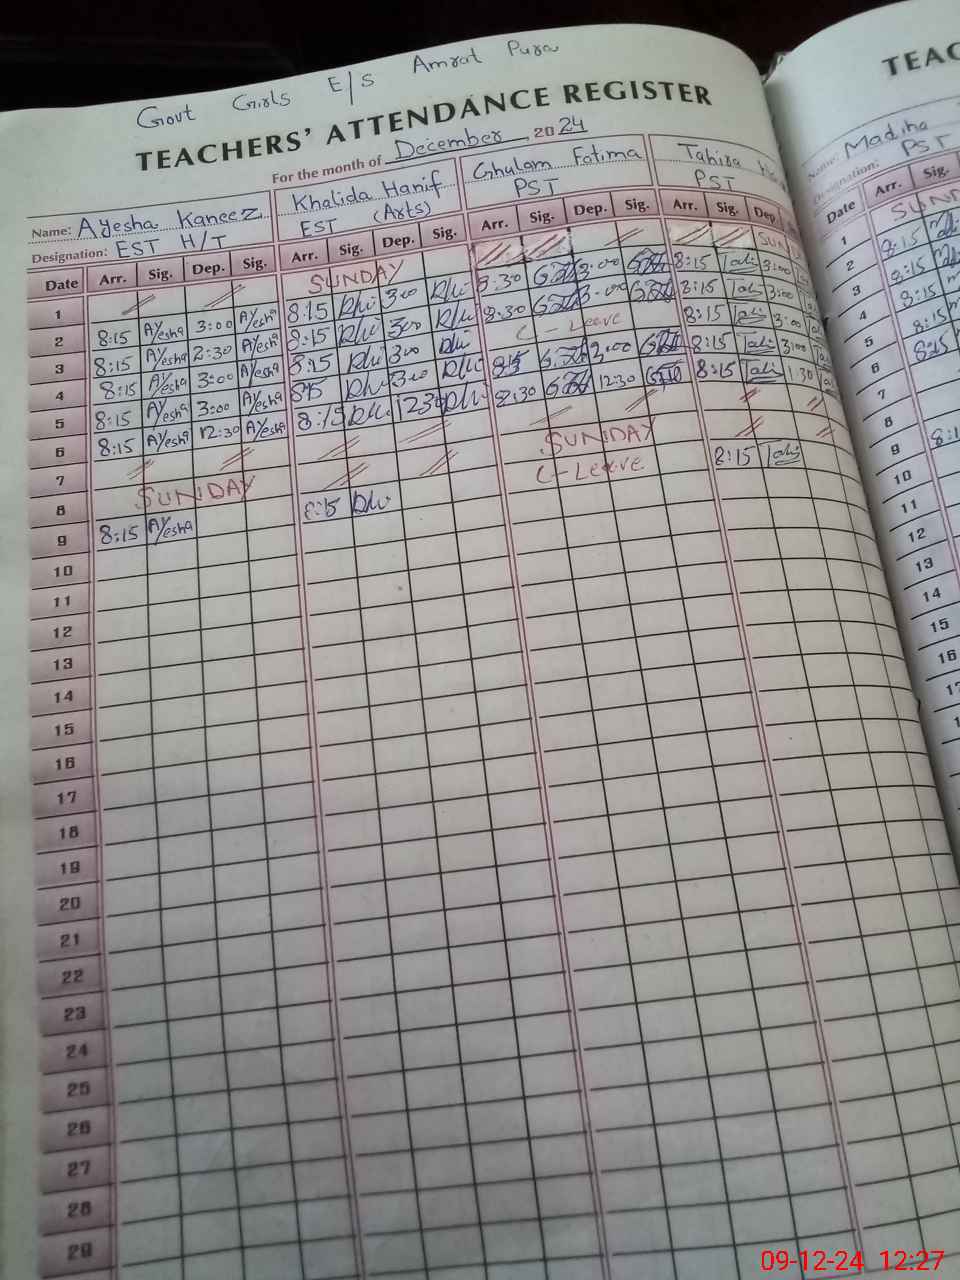 Govt Girls E/S Amrat Pura
TEACHERS' ATTENDANCE REGISTER
For the month of December 2024
Name: Ayesha Kaneez Khalida Hanif Ghulam Fatima Tahira
Designation: EST H/T EST (Arts) PST PST
Date Arr. Sig. Dep. Sig. Arr. Sig. Dep. Sig. Arr. Sig. Dep. Sig. Arr. Sig. Dep.
1 SUNDAY
2 8:15 Ayesha 3:00 Ayesha 8:15 3:00 8:30 3:00 8:15 3:00
3 8:15 Ayesha 2:30 Ayesha 8:15 3:00 8:30 3:00 8:15 3:00
4 8:15 Ayesha 3:00 Ayesha 8:15 3:00 C-Leave 8:15 3:00
5 8:15 Ayesha 3:00 Ayesha 8:15 3:00 8:15 3:00 8:15 3:00
6 8:15 Ayesha 12:30 Ayesha 8:15 12:30 8:30 12:30 8:15 1:30
7
8 SUNDAY SUNDAY
9 8:15 Ayesha 8:15 C-Leave 8:15
10
11
12
13
14
15
16
17
18
19
20
21
22
23
24
25
26
27
28
29
TEAC
Name: Madiha
Designation: PST
Date Arr. Sig.
1 SUND
2 8:15
3 8:15
4 8:15
5 8:15
6 8:15
7
8
9 8:1
10
11
12
13
14
15
16
09-12-24 12:27